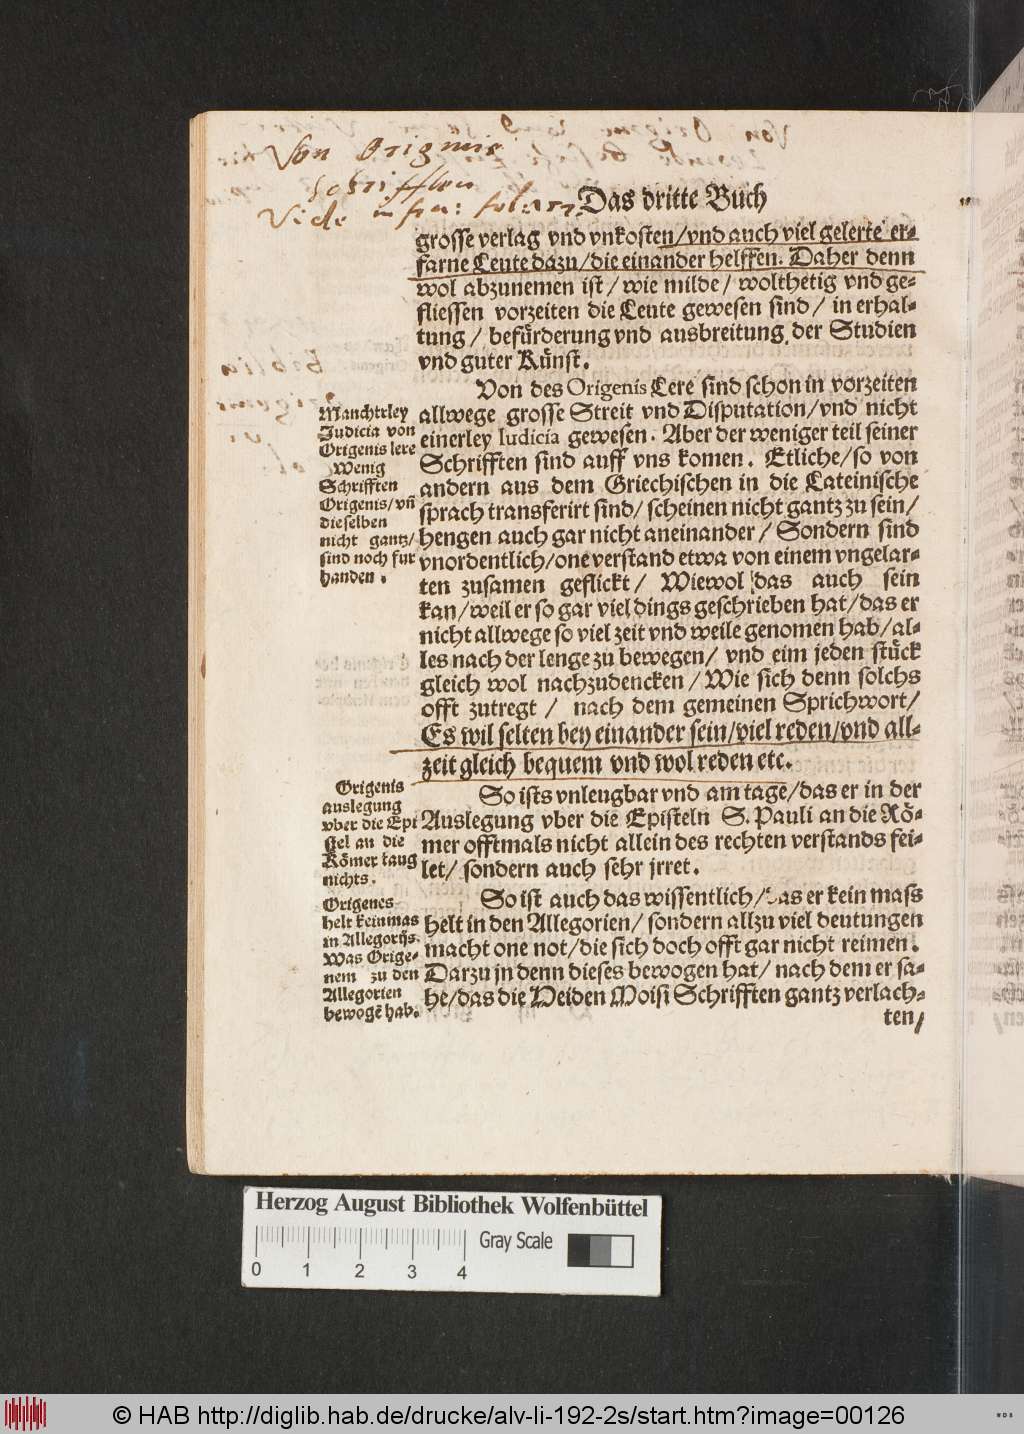 Von Origenis
Schrifften
Vide infra: fol:
Das dritte Buch
grosse verlag vnd vnkosten/vnd auch viel gelerte er-
farne Leute dazu/die einander helffen. Daher denn
wol abzunemen ist/wie milde/wolthetig vnd ge-
fliessen vorzeiten die Leute gewesen sind/in erhal-
tung/befürderung vnd ausbreitung der Studien
vnd guter Künst.
Von des Origenis Lere sind schon in vorzeiten
allwege grosse Streit vnd Disputation/vnd nicht
einerley Iudicia gewesen. Aber der weniger teil seiner
Schrifften sind auff vns komen. Etliche/so von
andern aus dem Griechischen in die Lateinische
sprach transferirt sind/scheinen nicht gantz zu sein/
hengen auch gar nicht aneinander/Sondern sind
vnordentlich/one verstand etwa von einem vngelar-
ten zusamen geflickt/Wiewol das auch sein
kan/weil er so gar viel dings geschrieben hat/das er
nicht allwege so viel zeit vnd weile genomen hab/al-
les nach der lenge zu bewegen/vnd eim jeden stück
gleich wol nachzudencken/Wie sich denn solchs
offt zutregt/nach dem gemeinen Sprichwort/
Es wil selten bey einander sein/viel reden/vnd all-
zeit gleich bequem vnd wol reden etc.
So ists vnleugbar vnd am tage/das er in der
Auslegung vber die Episteln S. Pauli an die Rö-
mer offtmals nicht allein des rechten verstands fei-
let/sondern auch sehr jrret.
So ist auch das wissentlich/das er kein mass
helt in den Allegorien/sondern allzu viel deutungen
macht one not/die sich doch offt gar nicht reimen.
Darzu jn denn dieses bewogen hat/nach dem er sa-
he/das die Heiden Moisi Schrifften gantz verlach-
ten/
Mancherley
Judicia von
Origenis lere
Wenig
Schrifften
Origenis/vñ
dieselben
nicht gantz/
sind noch fur
handen.
Origenis
auslegung
vber die Epi
stel an die
Römer taug
nichts.
Origenes
helt kein mas
in Allegorijs.
Was Orige-
nem zu den
Allegorien
bewogē hab.
Herzog August Bibliothek Wolfenbüttel
Gray Scale
0 1 2 3 4
© HAB http://diglib.hab.de/drucke/alv-li-192-2s/start.htm?image=00126